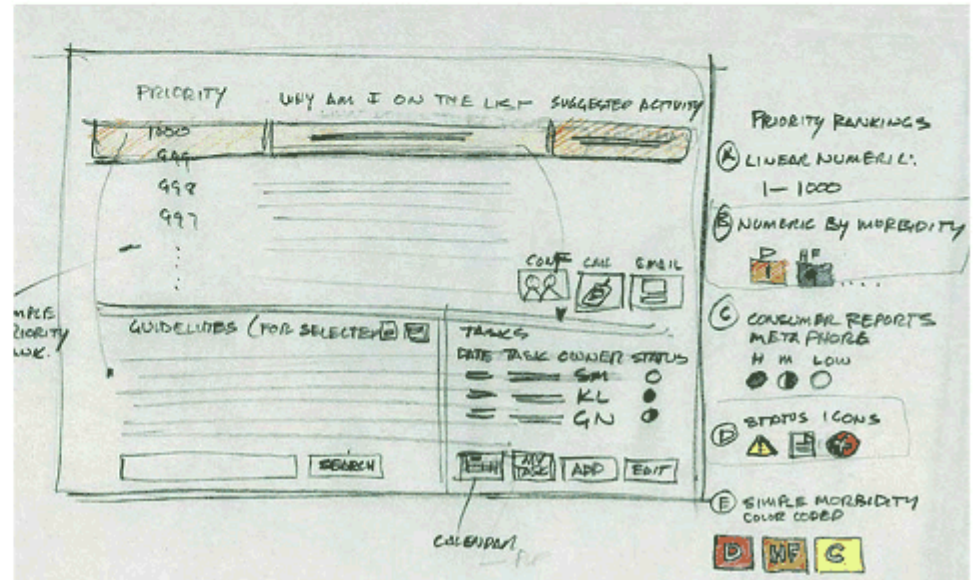 PRIORITY WHY AM I ON THE LIST SUGGESTED ACTIVITY
1000
999
998
997
CONF CALL EMAIL
GUIDELINES (FOR SELECTED
SEARCH
TASKS
DATE TASK OWNER STATUS
SM
KL
GN
MY TASK ADD EDIT
CALENDAR
MPLE
RIORITY
PRIORITY RANKINGS
A LINEAR NUMERIC:
1-1000
B NUMERIC BY MORBIDITY
D HF
1
C CONSUMER REPORTS
METAPHORE
H M LOW
D STATUS ICONS
E SIMPLE MORBIDITY
COLOR CODED
D HF C